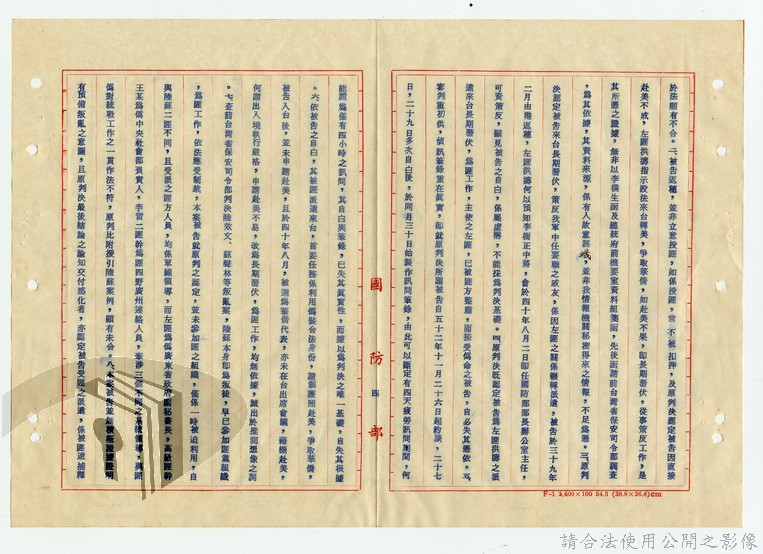 於法顯有不合。二、被告返穗，並非立意投匪，如係投匪，當不被扣押，及原判決認定被告因直接
赴美不成，左匪洪濤指示設法來台轉美，爭取華僑，如赴美不果，即長期潛伏，從事策反工作，是
其所憑之證據，無非以李樸生函及總統府前機要室資料組箋函，先後函請前台灣省保安司令部調查
，為其依據，其資料來源，係有人故意誣衊，並非我情報機關秘密得來之情報，不足為憑。三、原判
決認定被告來台長期潛伏，策反我軍中任要職之戚友，係因左匪之關係輾轉派遣，被告於三十九年
二月由港返穗，左匪洪濤何以預知李樹正中將，會於四十年八月二日即任國防部部長辦公室主任，
可資策反，顯見被告之自白，係屬虛構，不能採為判決基礎。四、原判決既認定被告為左匪洪濤之派
遣來台長期潛伏，為匪工作，主使之左匪，已被匪方整肅，而接受偽命之被告，自必失其憑依。五、
審判重初供，偵訊筆錄重在眞實，卽就原判決所謂被告自五十二年十一月二十六日起約談，二十七
日，二十九日多次自白後，於同月三十日始製作訊問筆錄，由此可以斷定有四天疲勞訊問期間，何
能謂為僅有四小時之訊問，其自白與筆錄，已失其眞實性，而據以為判決之唯一基礎，自失其根據
。六、依被告之自白，其被匪派遣來台，首要任務係利用偽裝合法身份，請領護照赴美，爭取華僑，
被告入台後，並未申請赴美，且於四十年八月，被選為華僑代表，亦未在台出席會議，藉機赴美，
何謂出入境執行嚴格，申請赴美不易，改為長期潛伏，為匪工作，均無依據，誠出於推測想像之詞
。七、查前台灣省保安司令部判決陸效文、蘇藝林等叛亂案，陸蘇本身卽為叛徒，早已參加匪黨組織
，為匪工作，依法應受制裁，本案被告就原判之認定，並未參加匪之組織，僅係一時被迫利用，自
與陸蘇二匪不同，且受派之匪方人員，均係單線領導，而左匪為偽廣東省政府副秘書長，高級匪幹
王某為偽中央社會部負責人，李雷二匪幹為匪四野廣州連絡人員，牽涉三個不同之系統領導，與匪
偽對統戰工作之一貫作法不符，原判比附援引陸蘇案例，顯有未合。八、本案被告並無積極證據證明
有預備叛亂之意圖，且原判決最後結論之諭知交付感化者，亦認定被告受匪之派遣，係被匪逮捕釋
國防部
四
F-1 2,400×100 54.3 (38.8×26.8)cm
請合法使用公開之影像